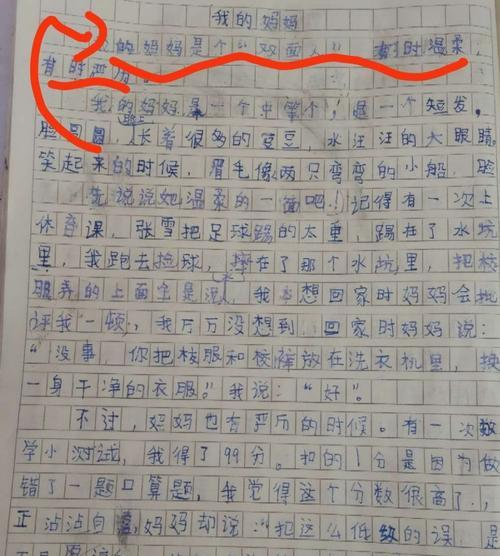 我的妈妈
的妈妈是个“双面人” 有时温柔,
有时严
我的妈妈是一个中等个,是一个短发,
脸圆圆,脸上长着很多的豆豆,水汪汪的大眼睛。
笑起来的时候,眉毛像两只弯弯的小船,脸
先说说她温柔的一面吧!记得有一次上
体育课,张雪把足球踢的太重,踢在了水坑
里,我跑去捡球,摔在了那个水坑里,把校
服弄的上面全是泥,我想回家时妈妈会批
评我一顿,我万万没想到 回家时妈妈说:
“没事,你把校服和校裤放在洗衣机里,换
一身干净的衣服。”我说:“好”。
不过,妈妈也有严历的时候。有一次数
学小测试,我得了99分。扣的1分是因为做
错了一题口算题,我觉得这个分数很高了,
正沾沾自喜,妈妈却说:“把这么低级的误 是